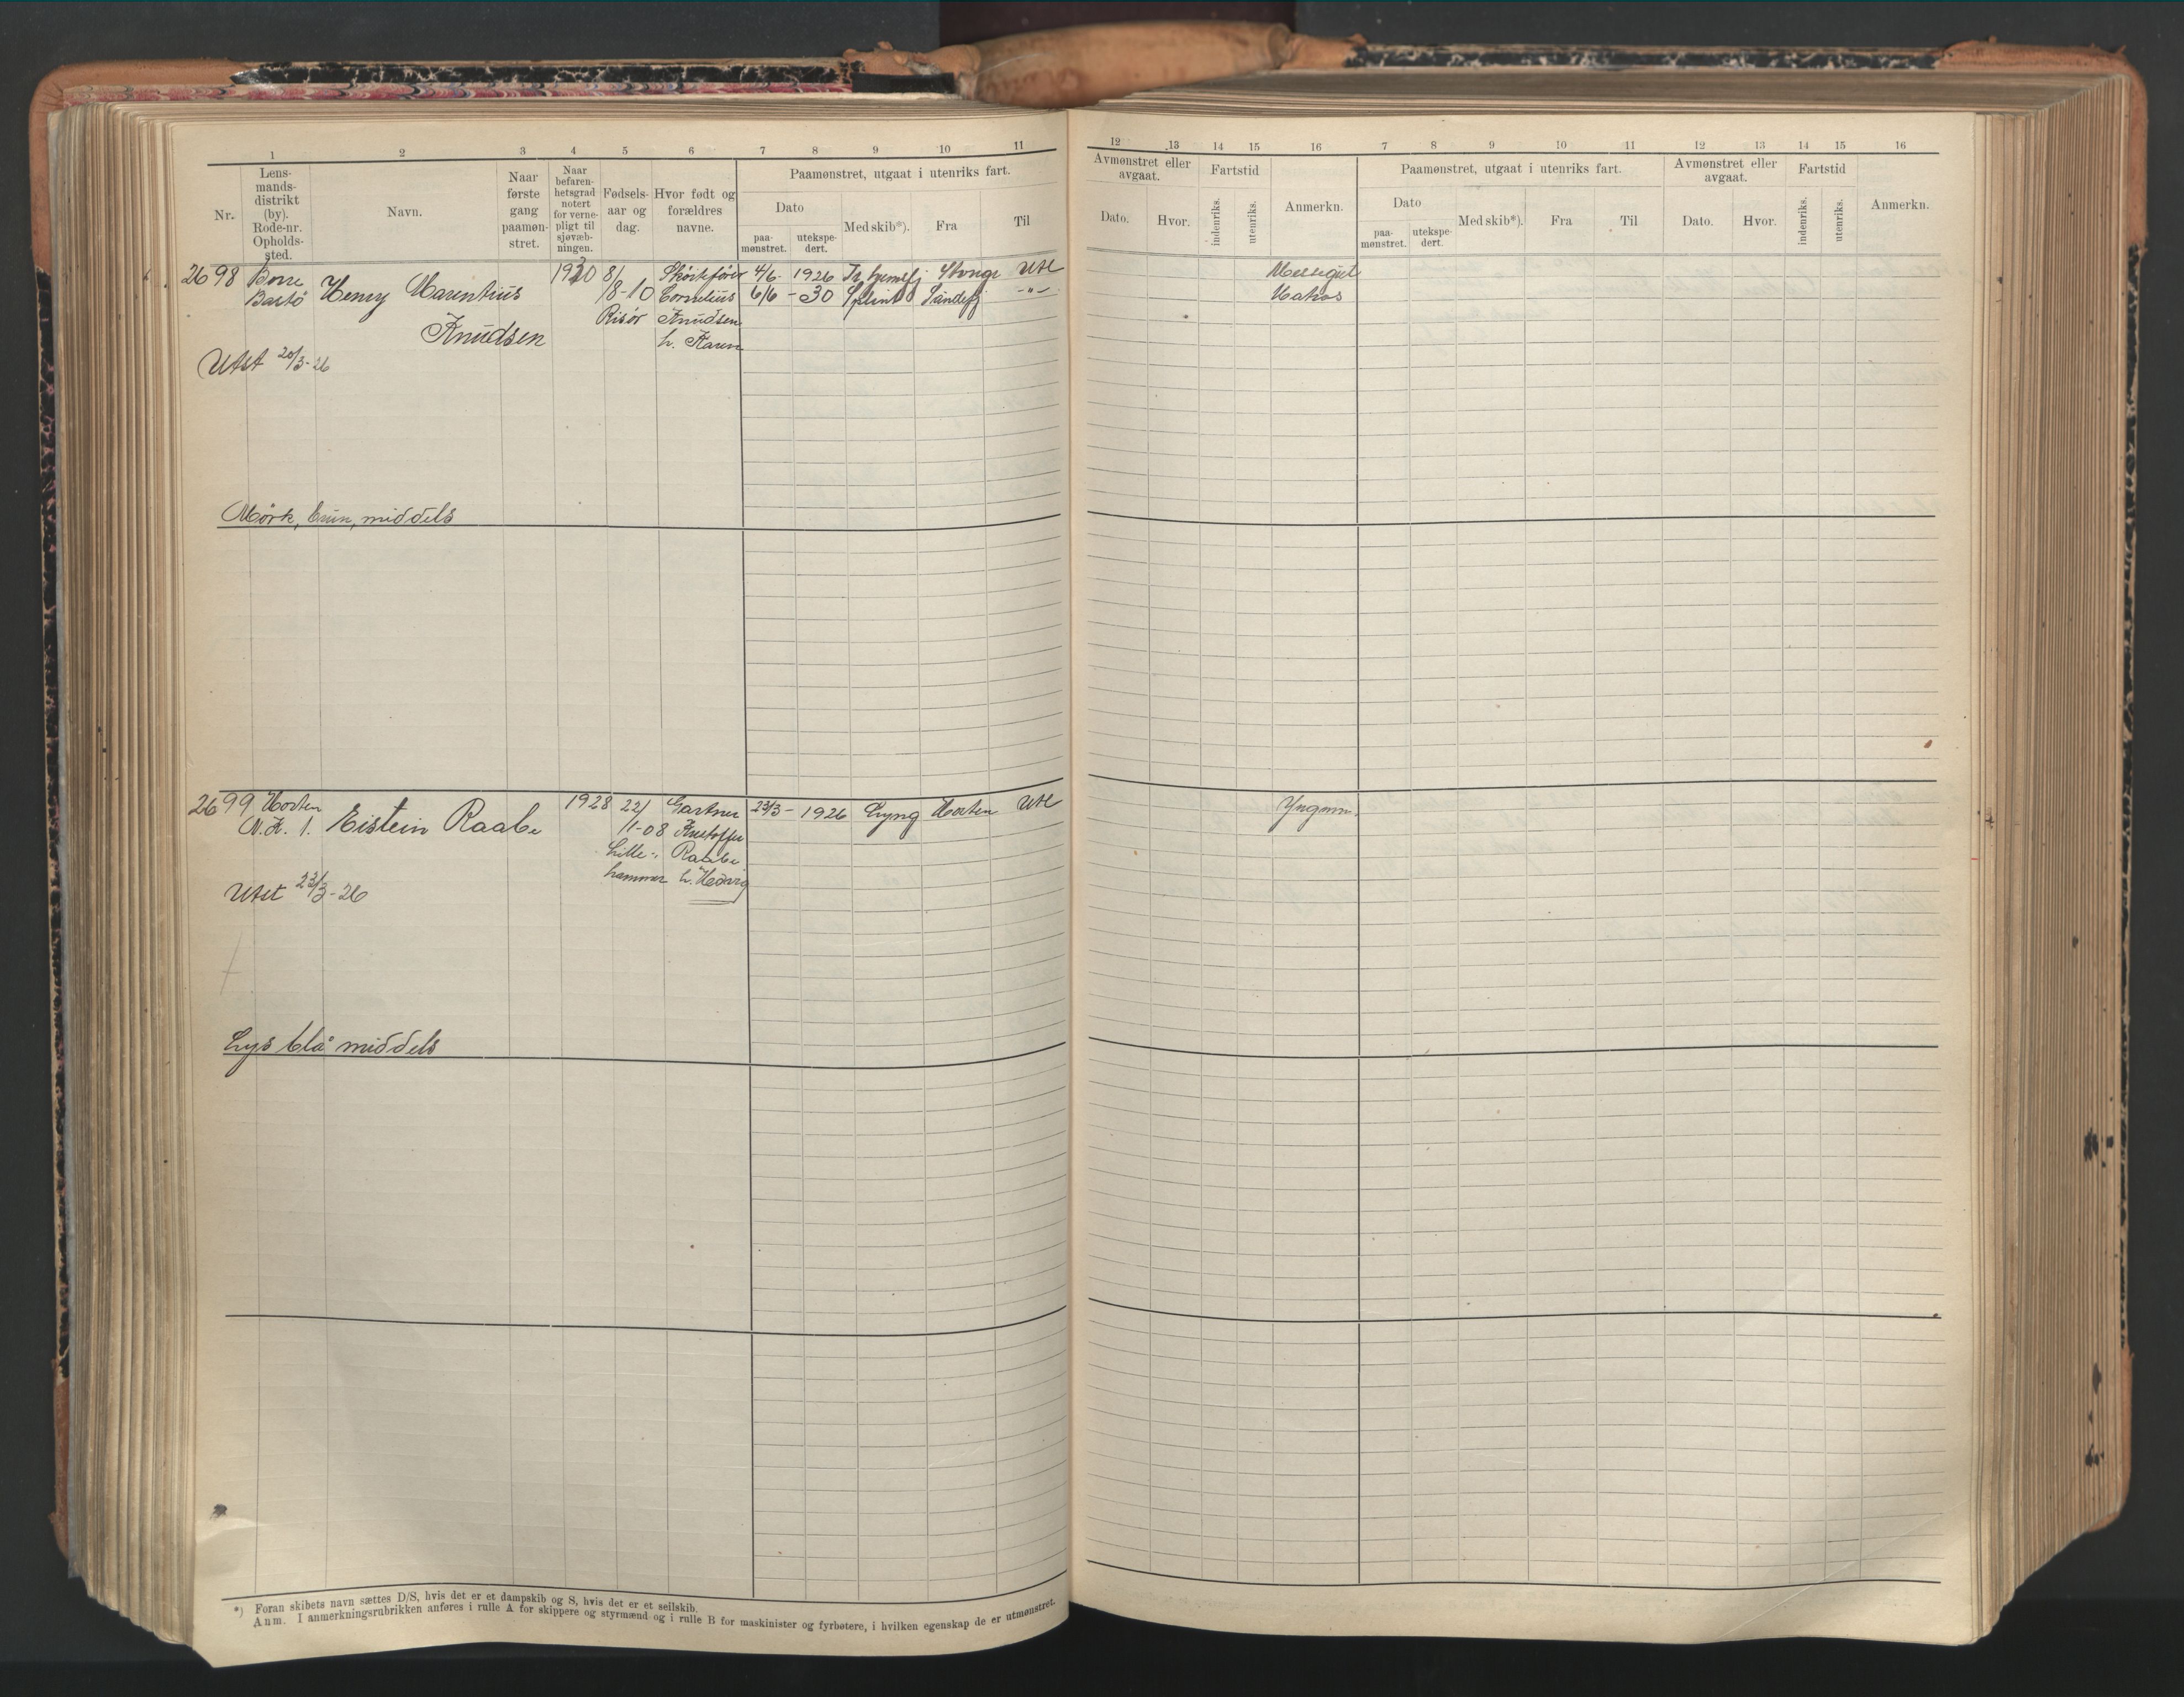 1 2 3 4 5 6 7 8 9 10 11
Nr.
Lens-
mands-
distrikt
(by).
Rode-nr.
Opholds-
sted.
Navn.
Naar
første
gang
paamøn-
stret.
Naar
befaren-
hetsgrad
notert
for verne-
pligt til
sjøvæb-
ningen.
Fødsels-
aar og
dag.
Hvor født og
forældres
navne.
Paamønstret, utgaat i utenriks fart.
Dato
paa-
mønstret.
utekspe-
dert.
Med skib*).
Fra
Til
2698 Borre 1930 8/ 4/6- 1926 Utl
Bastø Henry Marentius 8-10 Cornelius 6/6 -30 Splint Sandefj -"-
Risør Knudsen
Knudsen h. Karen
Utst 20/3-26
Mörk, brun, middels
2699 Horten 1928 22/ Gartner 23/3- 1926 Lyng Horten Utl
N.K. 1. Eistein Raabe 1-08 Kristoffer
Lille- Raabe
hammer h. Hedvig
Utst 23/3-26
Lys blå middels
*) Foran skibets navn sættes D/S, hvis det er et dampskib og S, hvis det er et seilskib.
Anm. I anmerkningsrubrikken anføres i rulle A for skippere og styrmænd og i rulle B for maskinister og fyrbøtere, i hvilken egenskap de er utmønstret.
12 13 14 15 16 7 8 9 10 11 12 13 14 15 16
Avmønstret eller
avgaat.
Dato.
Hvor.
Fartstid
indenriks.
utenriks.
Anmerkn.
Paamønstret, utgaat i utenriks fart.
Dato
paa-
mønstret.
utekspe-
dert.
Med skib*).
Fra
Til
Avmønstret eller
avgaat.
Dato.
Hvor.
Fartstid
indenriks.
utenriks.
Anmerkn.
Messegut
Matros
Yngmm.